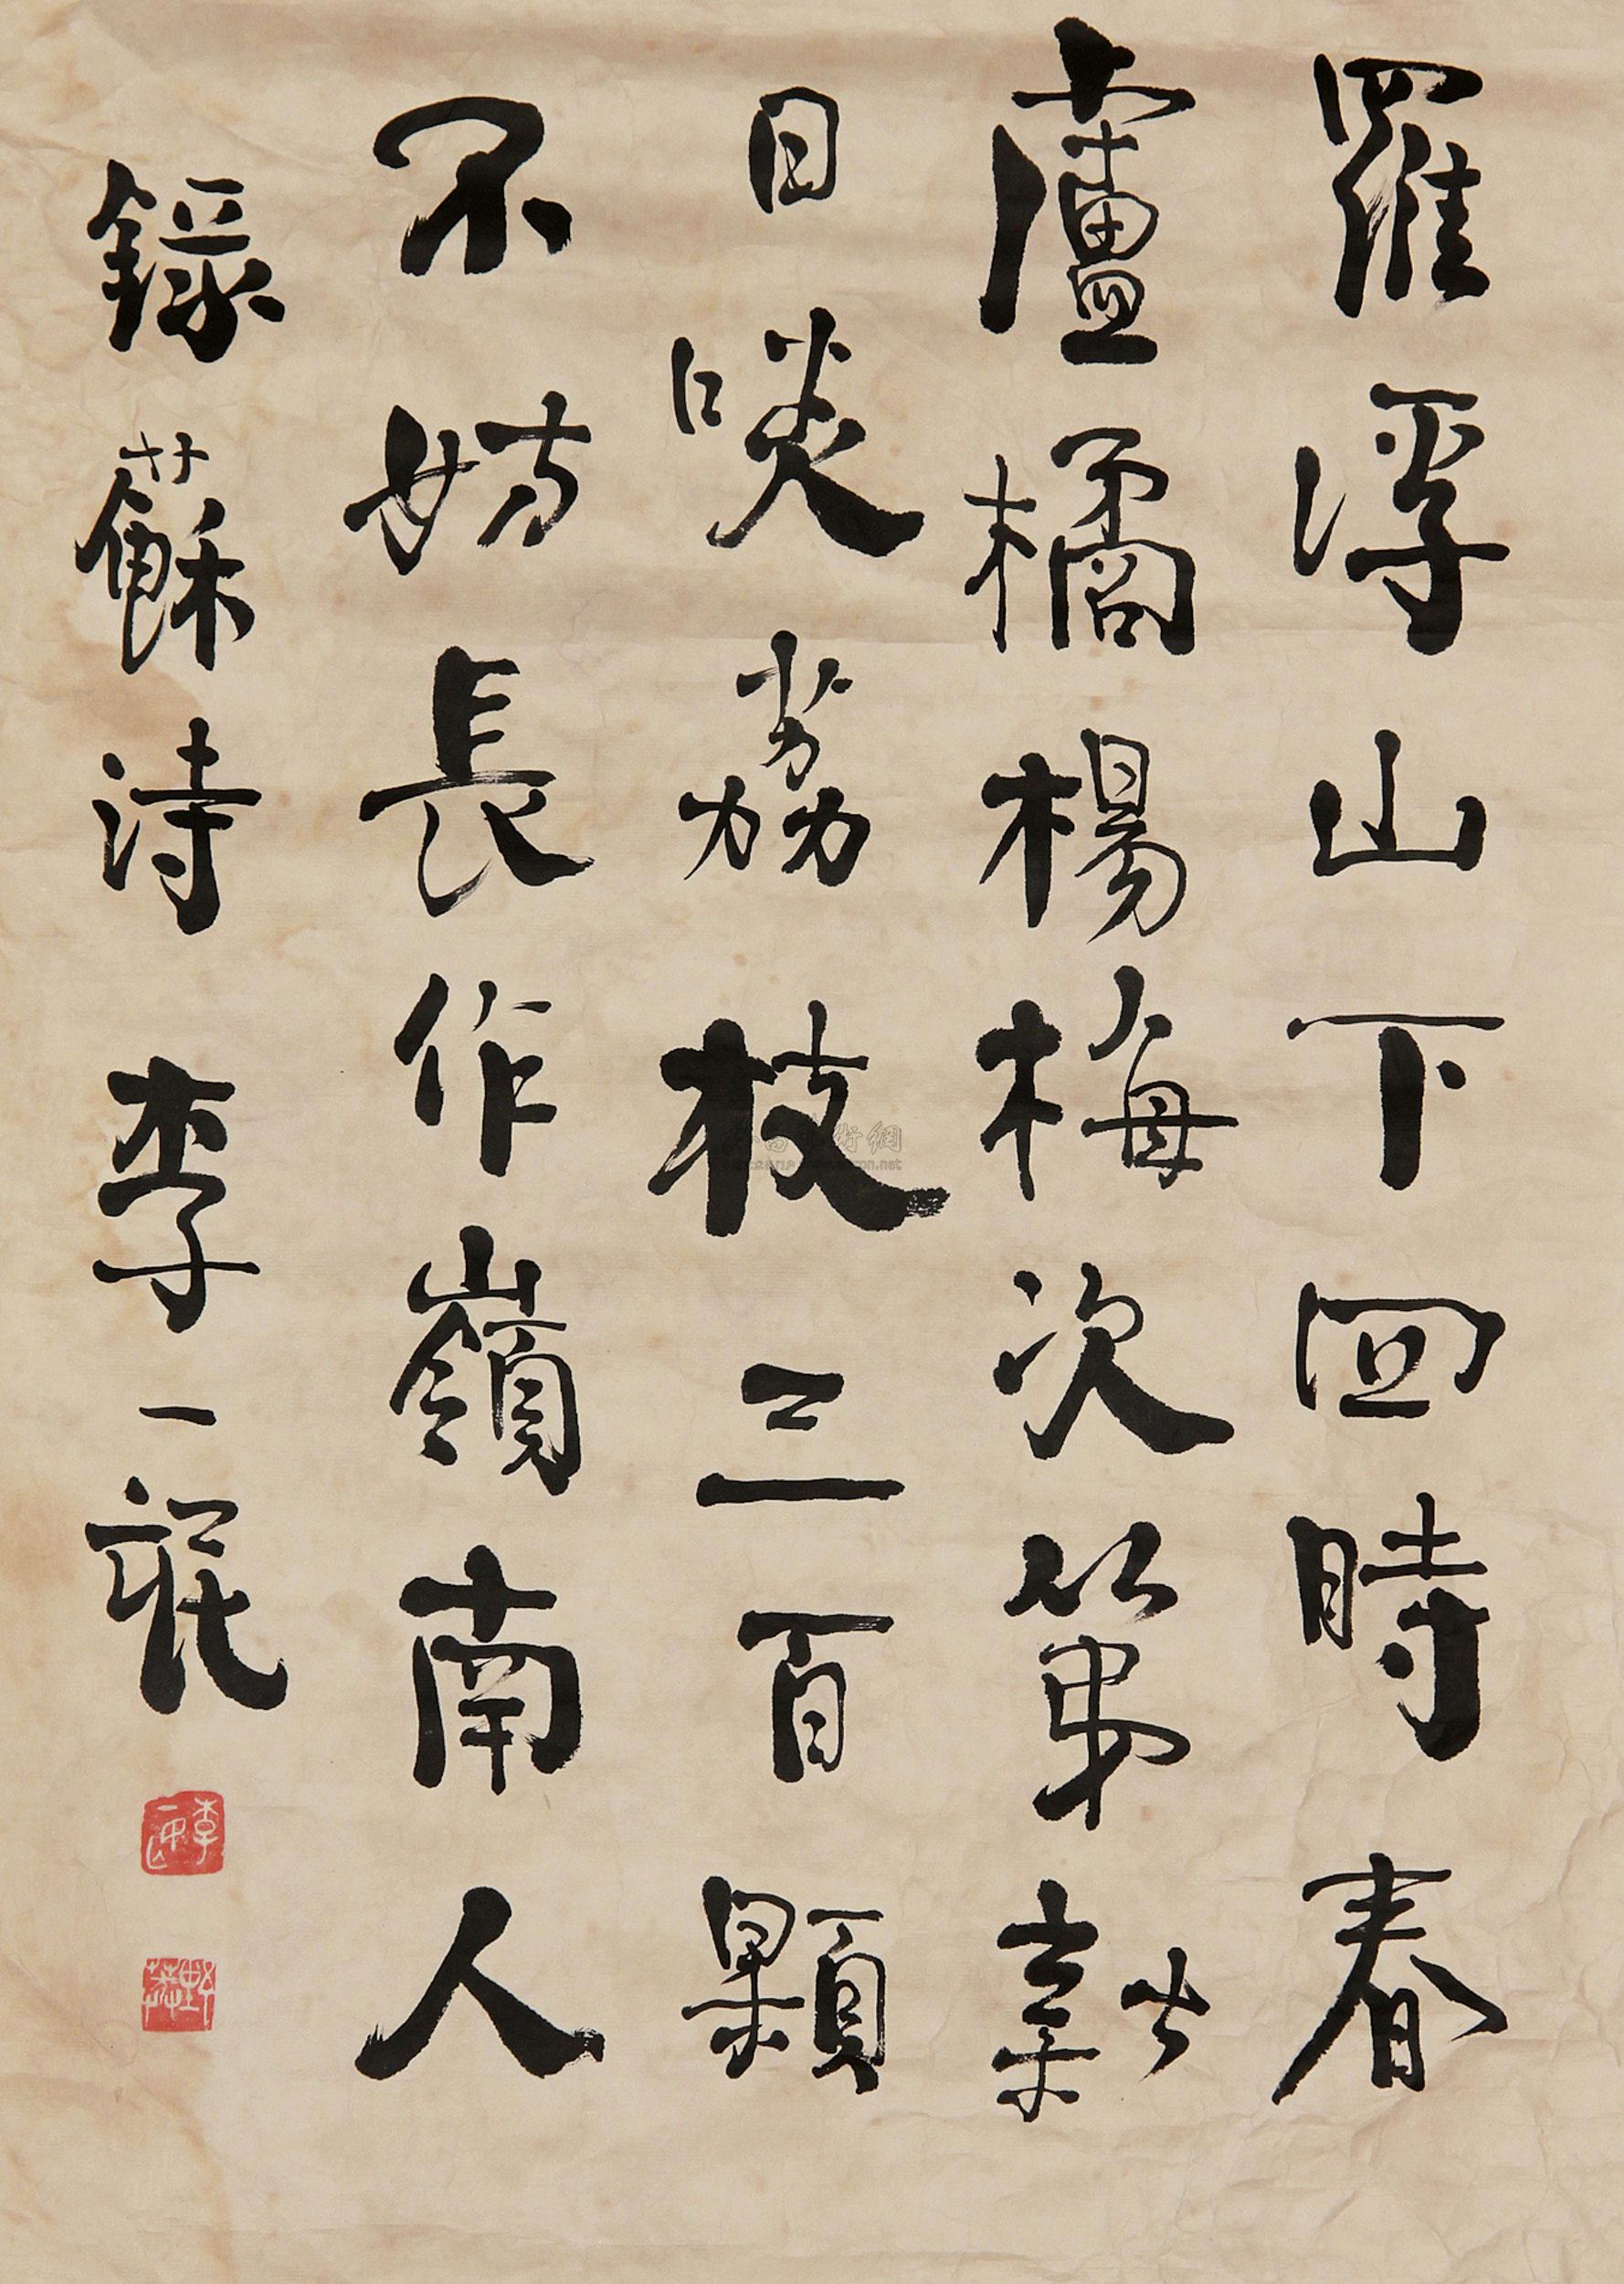 羅浮山下四時春
盧橘楊梅次第新
日啖荔枝三百顆
不妨長作嶺南人
錄蘇詩 李一氓
李一氓